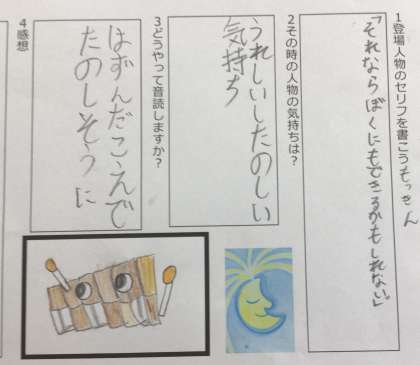 1登場人物のセリフを書こう もっきん
「それならぼくにもできるかもしれない。」
2その時の人物の気持ちは？
うれしいしたのしい
気持ち
3どうやって音読しますか？
はずんだこえで
たのしそうに
4感想